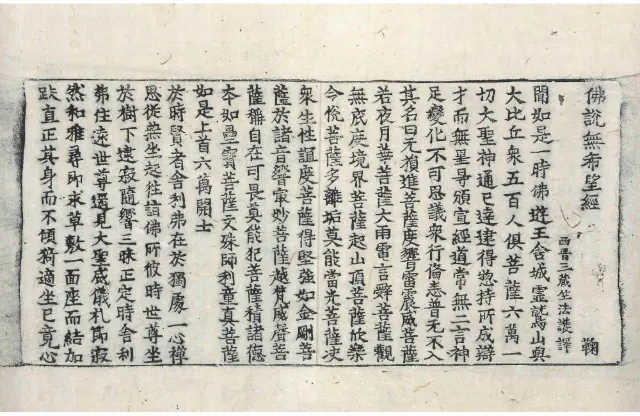 佛說無希望經
鞠
西晉三藏竺法護譯
聞如是一時佛遊王舍城靈鷲山與
大比丘衆五百人俱菩薩六萬一
切大聖神通已達逮得惣持所成辯
才而無罣㝵頒宣經道常無二言神
足變化不可思議衆行備悉普无不入
其名曰无損進菩薩度響雷震威菩薩
若夜月華菩薩大雨雷音辭菩薩觀
無底度境界菩薩超山頂菩薩欣樂
今悅菩薩多離垢莫能當光菩薩決
衆生性誼度菩薩得堅强如金剛菩
薩於諸音響軍妙菩薩越梵威聲菩
薩雜自在可畏莫能犯菩薩積諸德
本如疊寶菩薩文殊師利童真菩薩
如是上首六萬開士
於時賢者舍利弗在於獨處一心禪
思從燕坐起往詣佛所假時世尊坐
於樹下速寂隨響三昧正定時舍利
弗住遠世尊遥見大聖威儀禮節寂
然和雅尋即求草敷一面座而結加
趺直正其身而不傾猗適坐已竟心